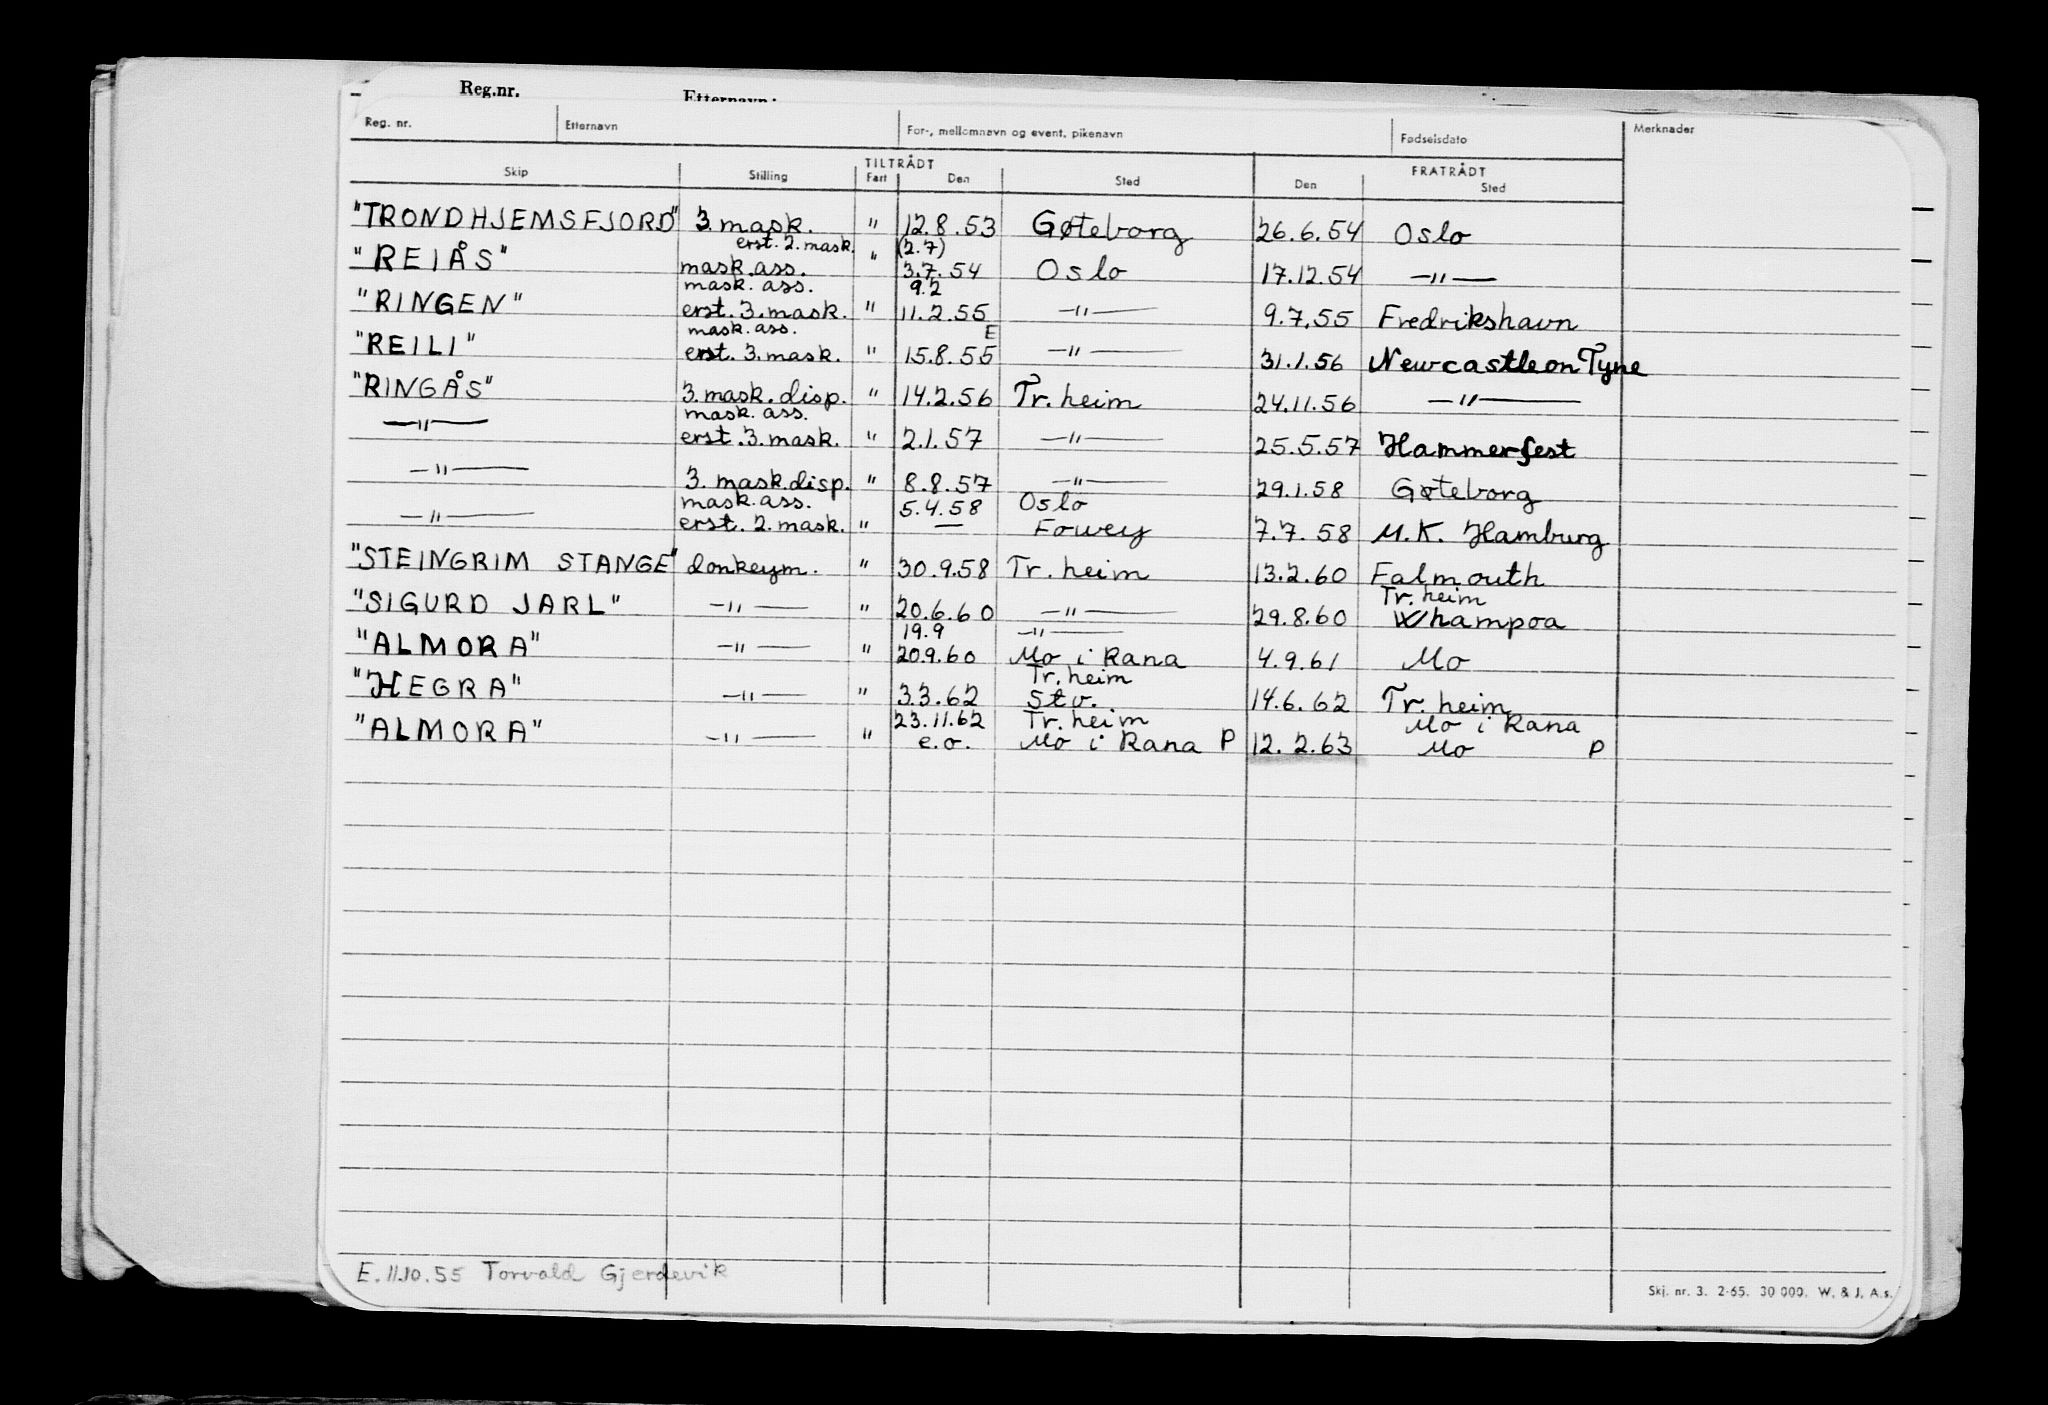 Reg.nr. Etternavn:
Reg. nr. Etternavn For-, mellomnavn og event. pikenavn Fødselsdato Merknader
TILTRÅDT FRATRÅDT
Skip Stilling Fart Den Sted Den Sted
"TRONDHJEMSFJORD" 3. mask. " 12.8.53 Gøteborg 26.6.54 Oslo
erst. 2. mask. (2.7)
"REIÅS" mask. ass. " 3.7.54 Oslo 17.12.54 —"—
mask. ass. 9.2
"RINGEN" erst. 3. mask. " 11.2.55 —"— 9.7.55 Fredrikshavn
mask. ass. E
"REILI" erst. 3. mask. " 15.8.55 —"— 31.1.56 Newcastle on Tyne
"RINGÅS" 3. mask. disp. " 14.2.56 Tr.heim 24.11.56 —"—
mask. ass.
—"— erst. 3. mask. " 2.1.57 —"— 25.5.57 Hammerfest
—"— 3. mask. disp. " 8.8.57 —"— 29.1.58 Gøteborg
mask. ass. 5.4.58 Oslo
—"— erst. 2. mask. " — Fowey 7.7.58 M.K. Hamburg
"STEINGRIM STANGE" donkeym. " 30.9.58 Tr.heim 13.2.60 Falmouth
Tr.heim
"SIGURD JARL" —"— " 20.6.60 —"— 29.8.60 Whampoa
19.9 —"—
"ALMORA" —"— " 20.9.60 Mo i Rana 4.9.61 Mo
Tr.heim
"HEGRA" —"— " 3.3.62 Stv. 14.6.62 Tr.heim
23.11.62 Tr.heim Mo i Rana
"ALMORA" —"— " e.o. Mo i Rana P 12.2.63 Mo P
E. 11.10.55 Torvald Gjerdevik
Skj. nr. 3. 2-65. 30 000. W. & J. A.s.